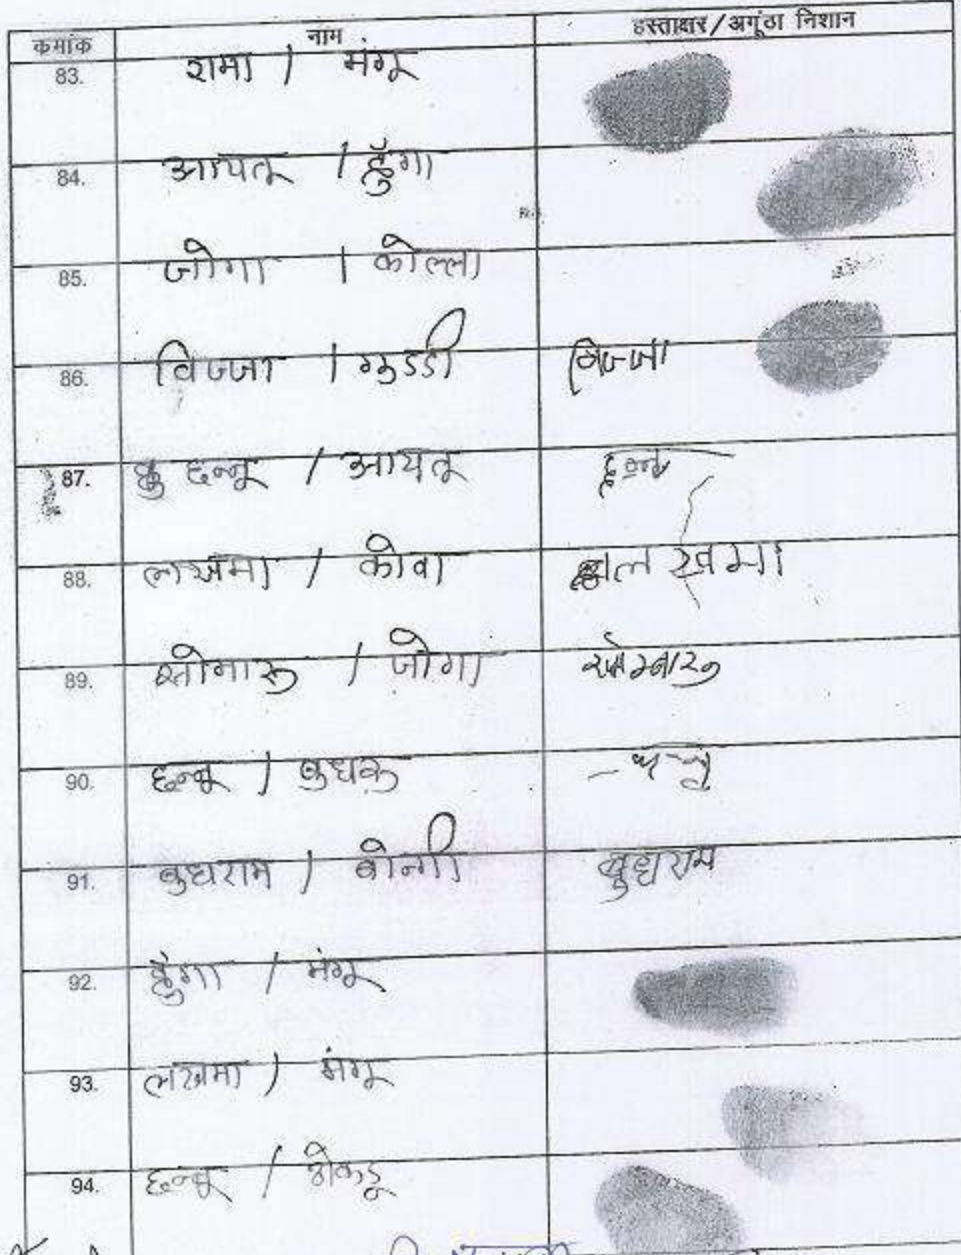 कमांक नाम हस्ताक्षर/अगूंठा निशान
83. रामा / मंगू
84. आयतू / हुँगा
85. जोगा / कोल्ला
86. विज्जा / गुडडी विज्जा
87. छन्नू / आयतू
88. लखमा / कोवा लखमा
89. सोमारू / जोगा
90. छन्नू / बुधरू
91. बुधराम / बोन्गी बुधराम
92. हुँगा / मंगू
93. लखमा / मंगू
94. छन्नू /